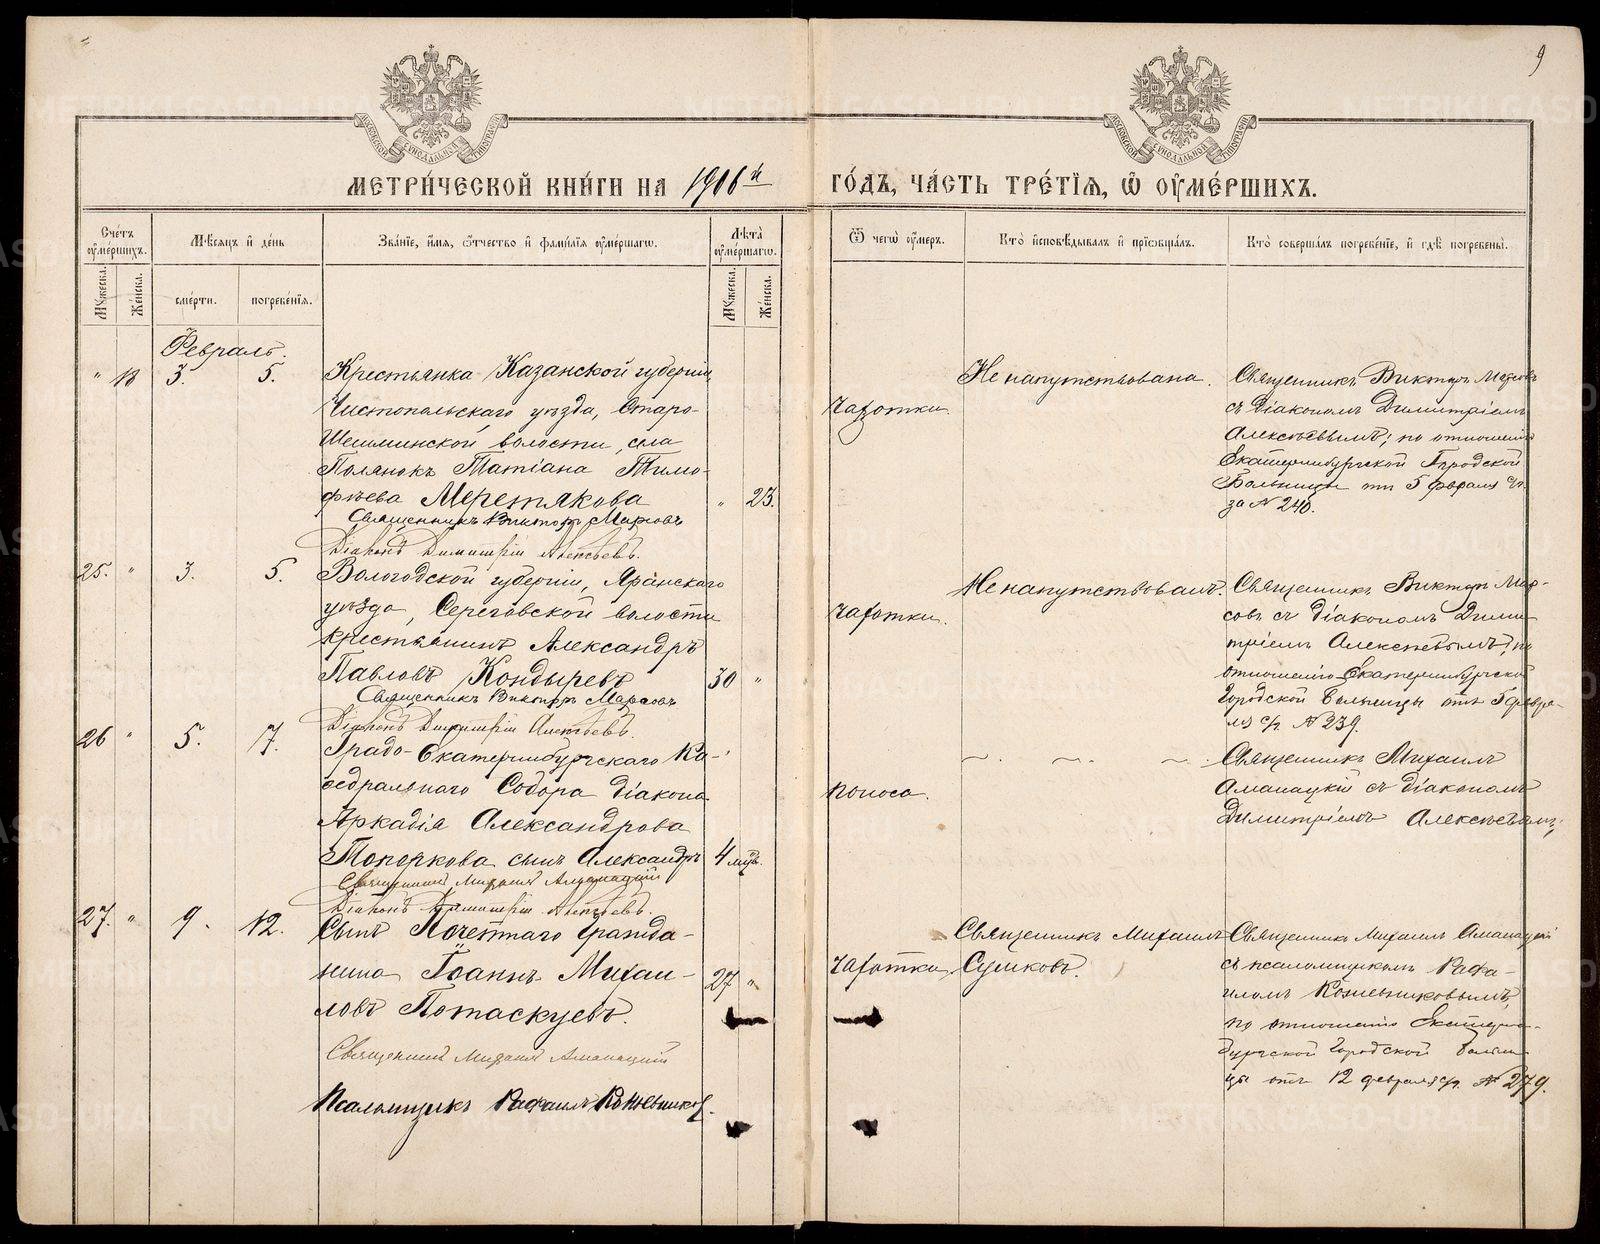 9
МОСКОВСКОЙ СѴНОДАЛЬНОЙ ТИПОГРАФІИ
МОСКОВСКОЙ СѴНОДАЛЬНОЙ ТИПОГРАФІИ
МЕТРИ́ЧЕСКОЙ КНИ́ГИ НА 1906й ГО́ДЪ, ЧА́СТЬ ТРЕ́ТІѦ, Ѽ ОУ҆МЕ́РШИХЪ.
Счетъ оу҆ме́ршихъ.
Мѣсяцъ и҆ де́нь
Зва́нїе, и҆́мѧ, ѻ҆́тчество и҆ фами́лїѧ оу҆ме́ршагѡ.
Лѣта̀ оу҆ме́ршагѡ.
Ѿ чегѡ̀ оу҆́меръ.
Кто̀ и҆сповѣ́дывалъ и҆ прїѡбща́лъ.
Кто̀ соверша́лъ погребе́нїе, и҆ гдѣ̀ погребены̀.
Мꙋ́жеска.
Же́нска.
сме́рти.
погребе́нїѧ.
Мꙋ́жеска.
Же́нска.
Февраль.
" 18 3. 5.
Крестьянка Казанской губерніи,
Чистопольскаго уѣзда, Старо-
Шешминской волости, села
Полянокъ Татіана Тимо-
фѣева Меретякова " 23.
Священникъ Викторъ Марсовъ
Діаконъ Димитрій Алексѣевъ.
Чахотки.
Не напутствована.
Священникъ Викторъ Марсовъ
съ діакономъ Димитріемъ
Алексѣевымъ; по отношенію
Екатеринбургской Городской
Больницы отъ 5 февраля с/г.
за № 240.
25. " 3. 5.
Вологодской губерніи, Яранскаго
уѣзда, Сереговской волости
крестьянинъ Александръ
Павловъ Кондыревъ 30 "
Священникъ Викторъ Марсовъ
Діаконъ Димитрій Алексѣевъ.
Чахотки.
Не напутствованъ.
Священникъ Викторъ Мар-
совъ съ діакономъ Дими-
тріемъ Алексѣевымъ; по
отношенію Екатеринбургской
Городской больницы отъ 5 февра-
ля с/г. № 239.
26 " 5. 7.
Градо-Екатеринбургскаго Ка-
ѳедральнаго Собора діакона
Аркадія Александрова
Топоркова сынъ Александръ 4 мѣс.
Священникъ Михаилъ Аманацкій
Діаконъ Димитрій Алексѣевъ.
Поноса.
Священникъ Михаилъ
Аманацкій съ діакономъ
Димитріемъ Алексѣевымъ;
27. " 9. 12.
Сынъ Почетнаго гражда-
нина Іоаннъ Михаи-
ловъ Потаскуевъ. 27 "
Священникъ Михаилъ Аманацкій
Псаломщикъ Рафаилъ Кожевниковъ.
Чахотки
Священникъ Михаилъ
Сушковъ.
Священникъ Михаилъ Аманацкій
съ псаломщикомъ Рафа-
иломъ Кожевниковымъ,
по отношенію Екатерин-
бургской Городской больни-
цы отъ 12 февраля с/г. № 279.